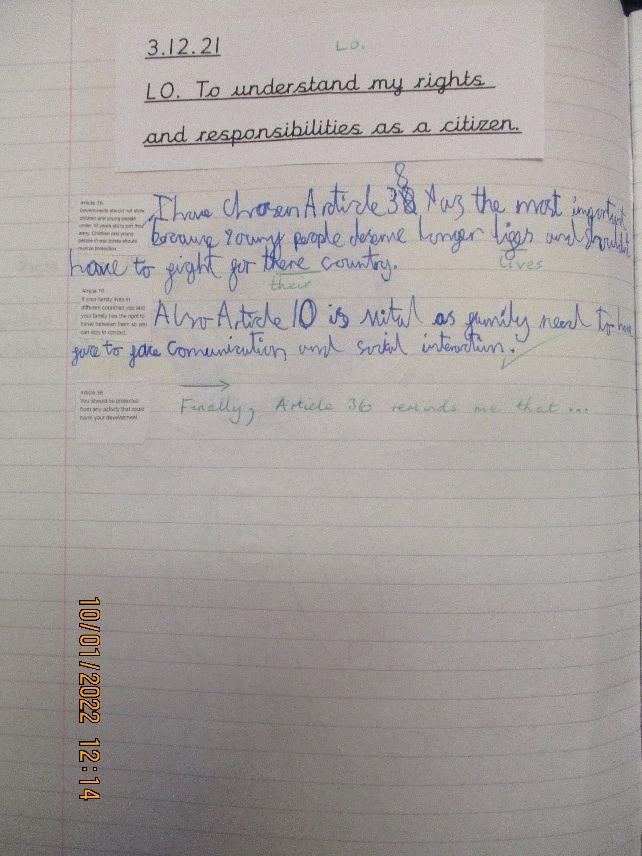 3.12.21
L.O.
LO. To understand my rights
and responsibilities as a citizen.
8
Article 38
Governments should not allow
children and young people
under 15 years old to join the
army. Children and young
people in war zones should
receive protection.
I have chosen Article 38 as the most important
because young people deserve longer and
have to fight for there country.
lives
their
Article 10
If your family lives in
different countries you and
your family has the right to
travel between them so you
can stay in contact.
Also Article 10 is vital as family need to
to comunication and social interaction.
Article 36
You should be protected
from any activity that could
harm your development.
Finally, Article 36 reminds me that ...
10/01/2022 12:14